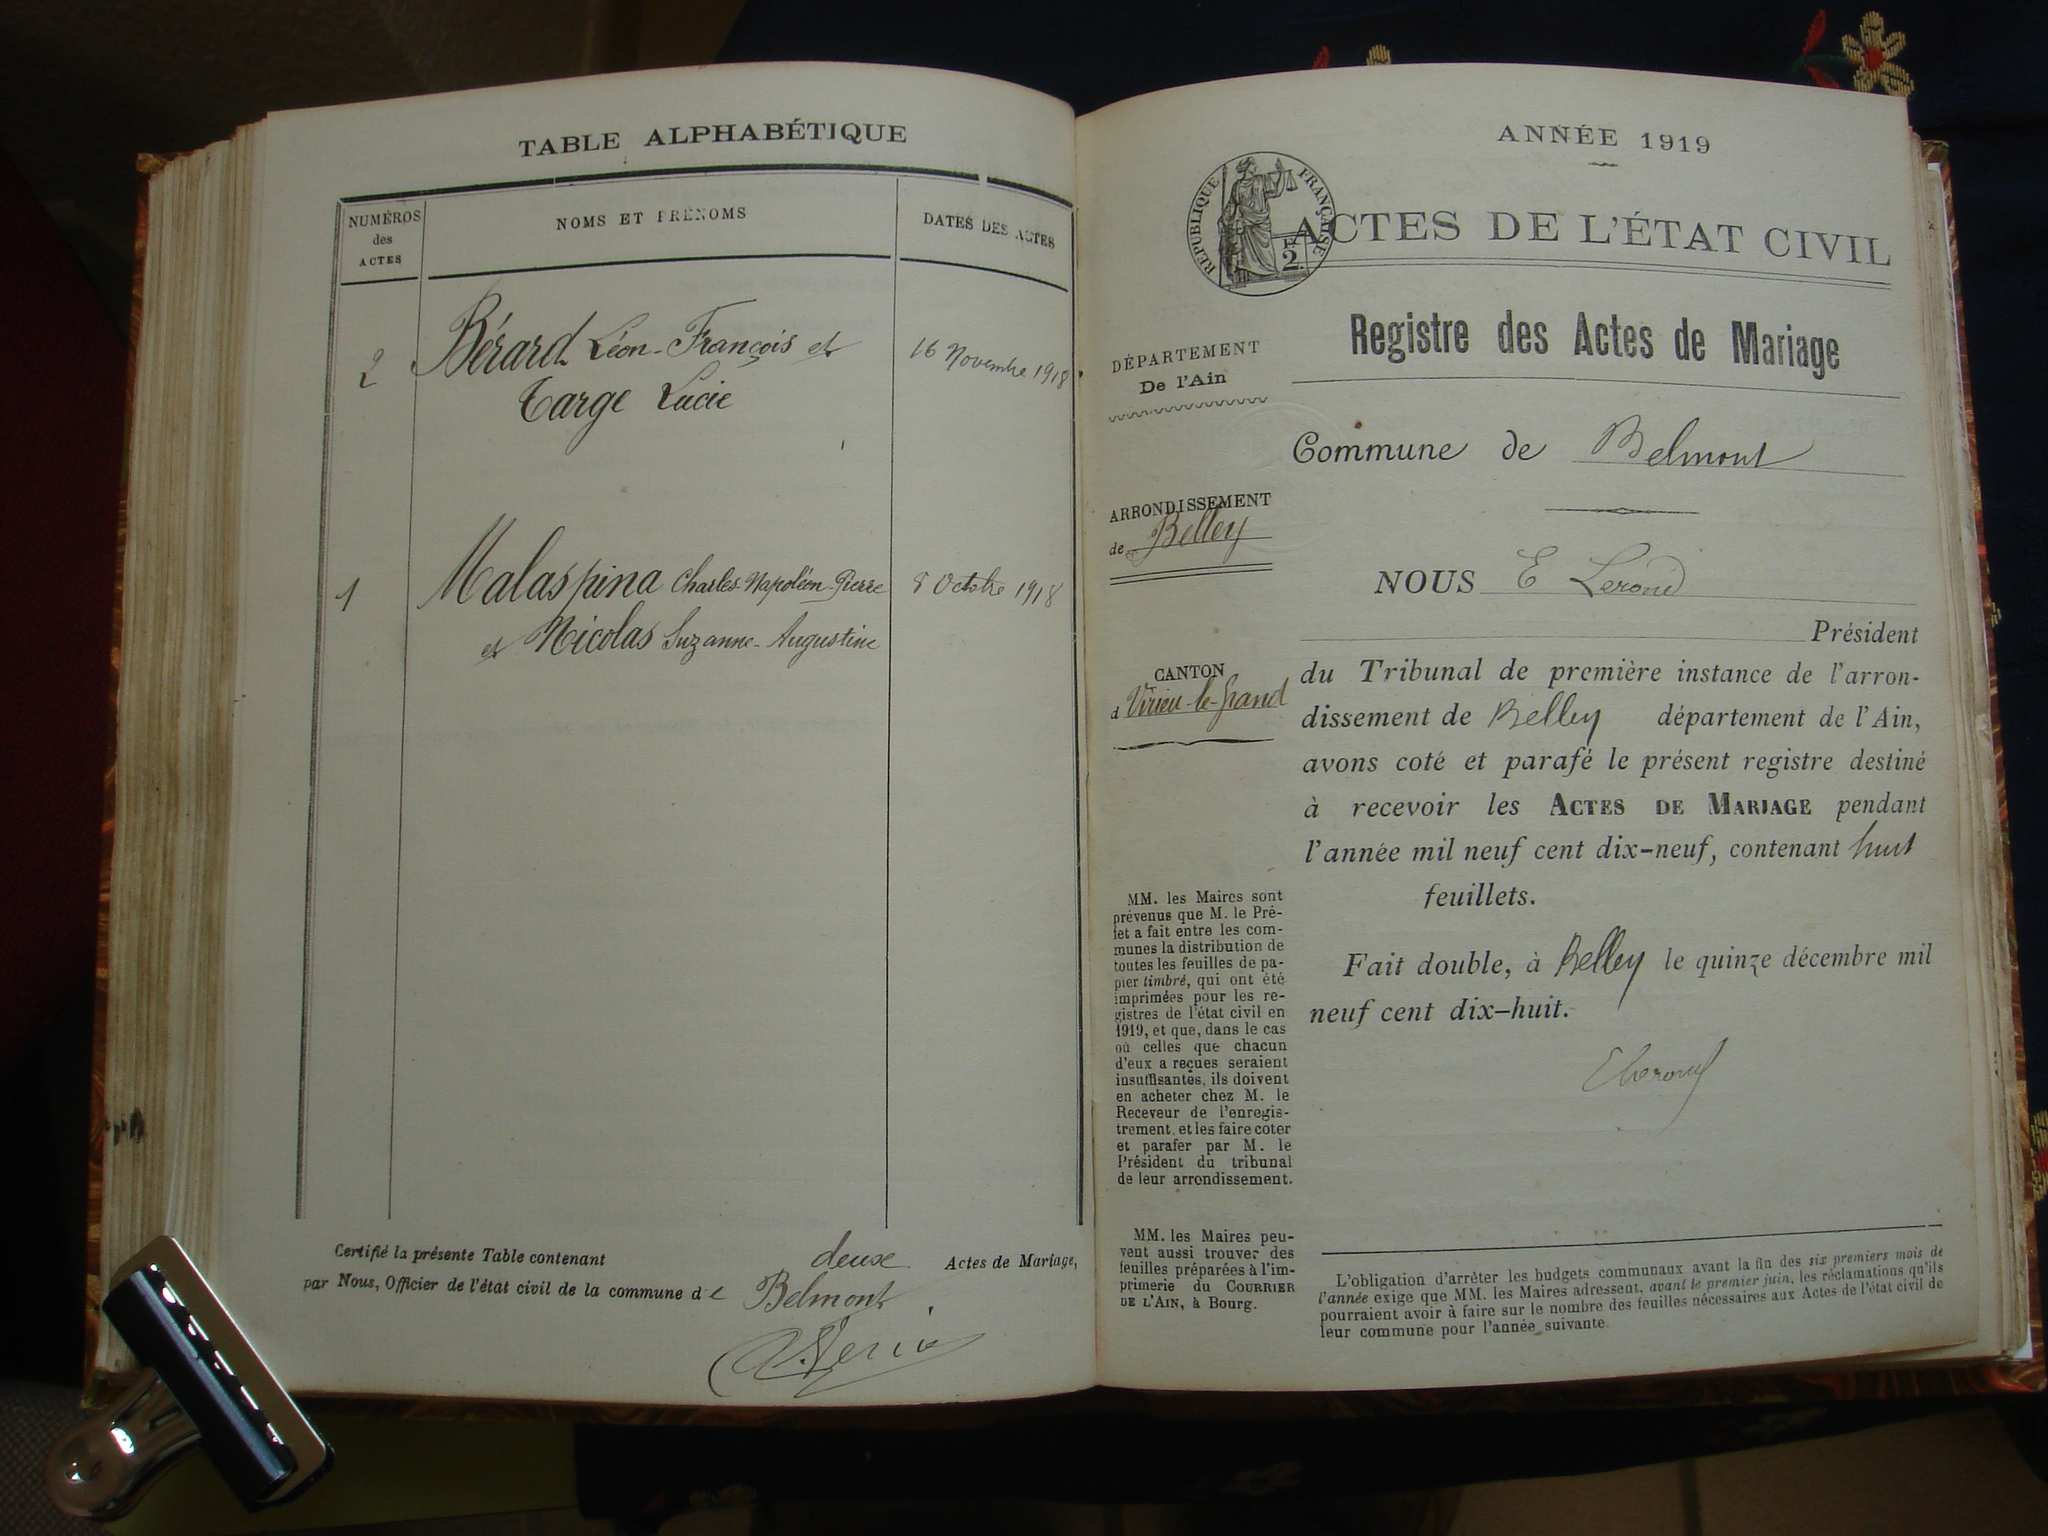 TABLE ALPHABÉTIQUE
NUMÉROS
des
ACTES
NOMS ET PRÉNOMS
DATES DES ACTES
2
Bérard Léon-François et
16 Novembre 1918
Targe Lucie
1
Malaspina Charles-Napoléon-Pierre
8 Octobre 1918
et Nicolas Suzanne-Augustine
Certifié la présente Table contenant deux Actes de Mariage,
par Nous, Officier de l'état civil de la commune de Belmont
ANNÉE 1919
RÉPUBLIQUE FRANÇAISE
2
ACTES DE L'ÉTAT CIVIL
Registre des Actes de Mariage
DÉPARTEMENT
De l'Ain
Commune de Belmont
ARRONDISSEMENT
de Belley
NOUS E Lerond
Président
CANTON
d Virieu-le-Grand
du Tribunal de première instance de l'arron-
dissement de Belley département de l'Ain,
avons coté et parafé le présent registre destiné
à recevoir les ACTES DE MARIAGE pendant
l'année mil neuf cent dix-neuf, contenant huit
feuillets.
Fait double, à Belley le quinze décembre mil
neuf cent dix-huit.
MM. les Maires sont
prévenus que M. le Pré-
fet a fait entre les com-
munes la distribution de
toutes les feuilles de pa-
pier timbré, qui ont été
imprimées pour les re-
gistres de l'état civil en
1919, et que, dans le cas
où celles que chacun
d'eux a reçues seraient
insuffisantes, ils doivent
en acheter chez M. le
Receveur de l'enregis-
trement, et les faire coter
et parafer par M. le
Président du tribunal
de leur arrondissement.
MM. les Maires peu-
vent aussi trouver des
feuilles préparées à l'im-
primerie du COURRIER
DE L'AIN, à Bourg.
L'obligation d'arrêter les budgets communaux avant la fin des six premiers mois de
l'année exige que MM. les Maires adressent, avant le premier juin, les réclamations qu'ils
pourraient avoir à faire sur le nombre des feuilles nécessaires aux Actes de l'état civil de
leur commune pour l'année suivante.